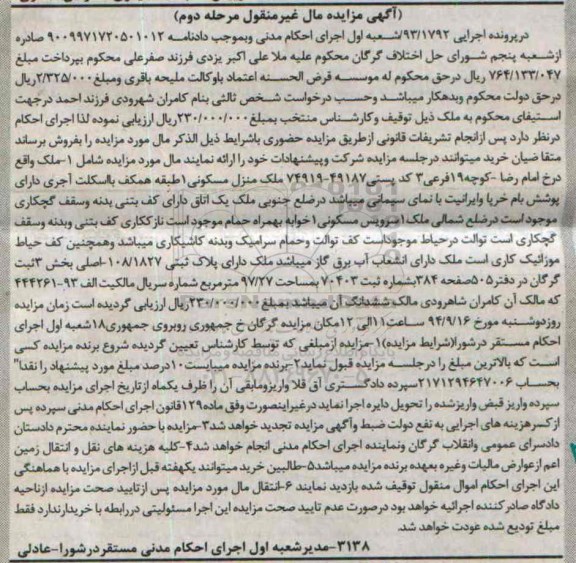 (آگهی مزایده مال غیرمنقول مرحله دوم)
درپرونده اجرایی ۹۳/۱۷۹۲/شعبه اول اجرای احکام مدنی وبموجب دادنامه ۹۰۰۹۹۷۱۷۲۰۵۰۱۰۱۲ صادره
ازشعبه پنجم شورای حل اختلاف گرگان محکوم علیه ملا علی اکبر یزدی فرزند صفرعلی محکوم بپرداخت مبلغ
۷۶۴/۱۳۳/۰۴۷ ریال درحق محکوم له موسسه قرض الحسنه اعتماد باوکالت ملیحه باقری ومبلغ۲/۳۲۵/۰۰۰ریال
درحق دولت محکوم وبدهکار میباشد وحسب درخواست شخص ثالثی بنام کامران شهرودی فرزند احمد درجهت
استیفای محکوم به ملک ذیل توقیف وکارشناس منتخب بمبلغ۲۳۰/۰۰۰/۰۰۰ریال ارزیابی نموده لذا اجرای احکام
درنظر دارد پس ازانجام تشریفات قانونی ازطریق مزایده حضوری باشرایط ذیل الذکر مال مورد مزایده را بفروش برساند
متقاضیان خرید میتوانند درجلسه مزایده شرکت وپیشنهادات خود را ارائه نمایند مال مورد مزایده شامل ۱-ملک واقع
درخ امام رضا -کوچه۱۹فرعی۳ کد پستی۴۹۱۸۷-۷۴۹۱۹ ملک منزل مسکونی۱طبقه همکف بااسکلت آجری دارای
پوشش بام خرپا وایرانیت با نمای سیمانی میباشد درضلع جنوبی ملک یک اتاق دارای کف بتنی بدنه وسقف گچکاری
موجود است درضلع شمالی ملک۱سرویس مسکونی۱خوابه بهمراه حمام موجود است نازککاری کف بتنی وبدنه وسقف
گچکاری است توالت درحیاط موجوداست کف توالت وحمام سرامیک وبدنه کاشیکاری میباشد وهمچنین کف حیاط
موزائیک کاری است ملک دارای انشعاب آب برق گاز میباشد ملک دارای پلاک ثبتی ۱۰۸/۱۸۲۷-اصلی بخش ۳ثبت
گرگان در دفتر۵۰۵صفحه ۳۸۴بشماره ثبت ۷۰۴۰۳ بمساحت ۹۷/۲۷ مترمربع شماره سریال مالکیت الف ۹۳-۴۴۴۲۶۱
که مالک آن کامران شاهرودی مالک ششدانگ آن میباشد بمبلغ ۲۳۰/۰۰۰/۰۰۰ریال ارزیابی گردیده است زمان مزایده
روزدوشنبه مورخ ۹۴/۹/۱۶ ساعت۱۱الی ۱۲مکان مزایده گرگان خ جمهوری روبروی جمهوری۱۸شعبه اول اجرای
احکام مستقر درشورا(شرایط مزایده)۱-مزایده ازمبلغی که توسط کارشناس تعیین گردیده شروع برنده مزایده کسی
است که بالاترین مبلغ را درجلسه مزایده قبول نماید۲-برنده مزایده میبایست۱۰درصد مبلغ مورد پیشنهاد را نقدا"
بحساب ۲۱۷۱۲۹۴۶۴۷۰۰۶سپرده دادگستری آق قلا واریزومابقی آن را ظرف یکماه ازتاریخ اجرای مزایده بحساب
سپرده واریز قبض واریزشده را تحویل دایره اجرا نماید درغیراینصورت وفق ماده۱۲۹قانون اجرای احکام مدنی سپرده پس
ازکسرهزینه های اجرایی به نفع دولت ضبط وآگهی مزایده تجدید خواهد شد۳-مزایده با حضور نماینده محترم دادستان
دادسرای عمومی وانقلاب گرگان ونماینده اجرای احکام مدنی انجام خواهد شد۴-کلیه هزینه های نقل و انتقال زمین
اعم ازعوارض مالیات وغیره بعهده برنده مزایده میباشد۵-طالبین خرید میتوانند یکهفته قبل ازاجرای مزایده با هماهنگی
این اجرای احکام اموال منقول توقیف شده بازدید نمایند ۶-انتقال مال مورد مزایده پس ازتایید صحت مزایده ازناحیه
دادگاه صادرکننده اجرائیه خواهد بود درصورت عدم تایید صحت مزایده این اجرا مسئولیتی دررابطه با خریدارندارد فقط
مبلغ تودیع شده عودت خواهد شد.
۳۱۳۸-مدیرشعبه اول اجرای احکام مدنی مستقردرشورا-عادلی